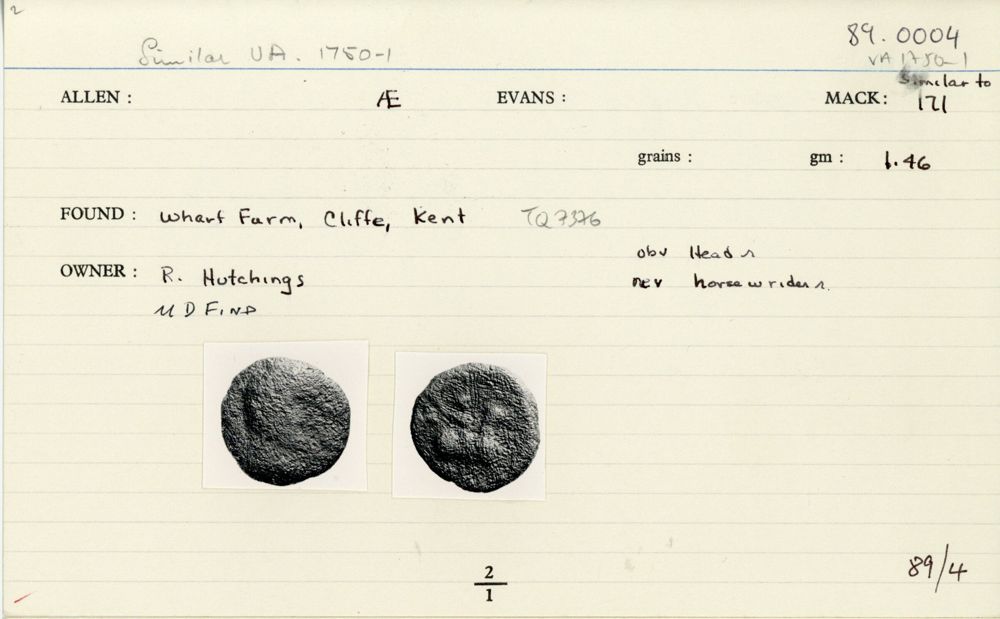 2
89.0004
Similar VA. 1750-1
VA 1750-1
Similar to
ALLEN : Æ EVANS : MACK: 171
grains : gm : 1.46
FOUND : Wharf Farm, Cliffe, Kent TQ7376
obv Head r
OWNER : R. Hutchings
rev horse w rider r.
M D FIND
2
1
89/4